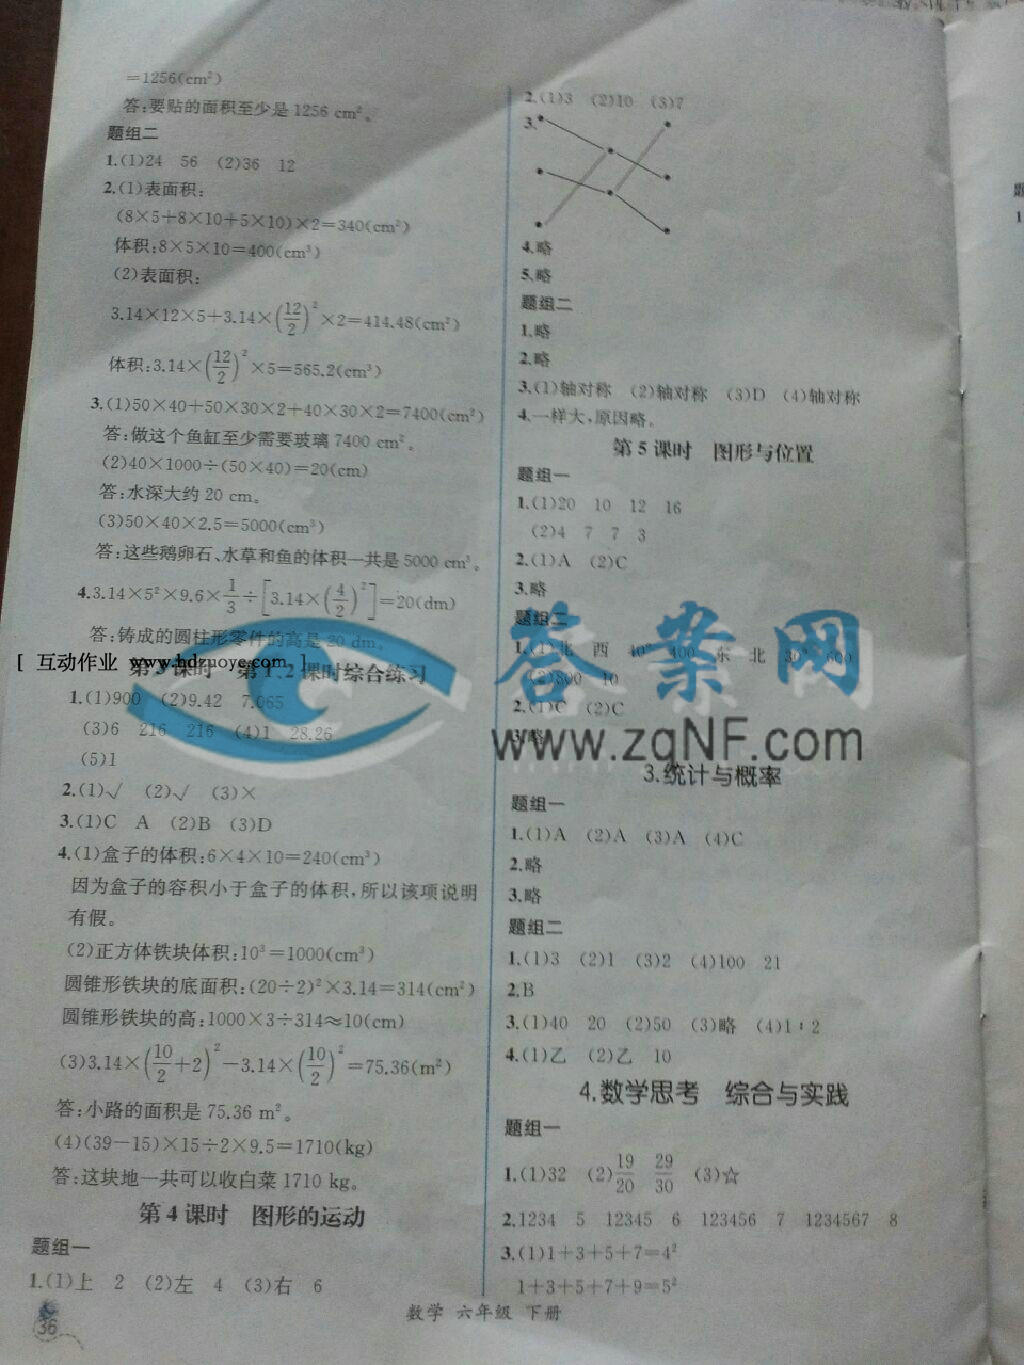 =1256(cm²)
答:要贴的面积至少是1256 cm²。
题组二
1.(1)24 56 (2)36 12
2.(1)表面积:
(8×5+8×10+5×10)×2=340(cm²)
体积:8×5×10=400(cm³)
(2)表面积:
3.14×12×5+3.14×(12/2)²×2=414.48(cm²)
体积:3.14×(12/2)²×5=565.2(cm³)
3.(1)50×40+50×30×2+40×30×2=7400(cm²)
答:做这个鱼缸至少需要玻璃7400 cm²。
(2)40×1000÷(50×40)=20(cm)
答:水深大约20 cm。
(3)50×40×2.5=5000(cm³)
答:这些鹅卵石、水草和鱼的体积一共是5000 cm³。
4.3.14×5²×9.6×1/3÷[3.14×(4/2)²]=20(dm)
答:铸成的圆柱形零件的高是20 dm。
[ 互动作业 www.hdzuoye.com ]
第3课时 第1、2课时综合练习
1.(1)900 (2)9.42 7.065
(3)6 216 216 (4)1 28.26
(5)1
2.(1)√ (2)√ (3)×
3.(1)C A (2)B (3)D
4.(1)盒子的体积:6×4×10=240(cm³)
因为盒子的容积小于盒子的体积,所以该项说明
有假。
(2)正方体铁块体积:10³=1000(cm³)
圆锥形铁块的底面积:(20÷2)²×3.14=314(cm²)
圆锥形铁块的高:1000×3÷314≈10(cm)
(3)3.14×(10/2+2)²-3.14×(10/2)²=75.36(m²)
答:小路的面积是75.36 m²。
(4)(39-15)×15÷2×9.5=1710(kg)
答:这块地一共可以收白菜1710 kg。
第4课时 图形的运动
题组一
1.(1)上 2 (2)左 4 (3)右 6
2.(1)3 (2)10 (3)7
3.
4.略
5.略
题组二
1.略
2.略
3.(1)轴对称 (2)轴对称 (3)D (4)轴对称
4.一样大,原因略。
第5课时 图形与位置
题组一
1.(1)20 10 12 16
(2)4 7 7 3
2.(1)A (2)C
3.略
题组二
1.(1)北 西 40° 400 东 北 30° 600
(2)800 10
2.(1)C (2)C
3.略
答案网
www.zqNF.com
3.统计与概率
题组一
1.(1)A (2)A (3)A (4)C
2.略
3.略
题组二
1.(1)3 (2)1 (3)2 (4)100 21
2.B
3.(1)40 20 (2)50 (3)略 (4)1∶2
4.(1)乙 (2)乙 10
4.数学思考 综合与实践
题组一
1.(1)32 (2)19/20 29/30 (3)☆
2.1234 5 12345 6 123456 7 1234567 8
3.(1)1+3+5+7=4²
1+3+5+7+9=5²
36
数学 六年级 下册
题
1